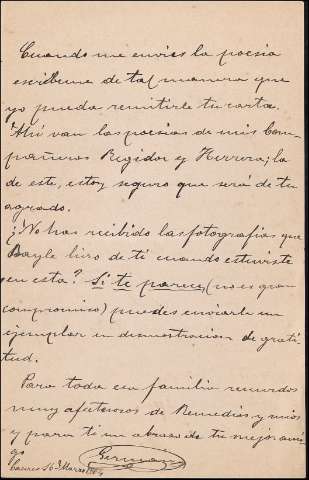 Cuando me envies la poesia
escribeme de tal manera que
yo pueda remitirle tu carta.
Ahí van las poesias de mis Com-
pañeros Regidor y Herrera; la
de este, estoy seguro que será de tu
agrado.
¿No has recibido las fotografias que
Bayle hizo de ti cuando estuviste
en esta? Si te parece, (no es gran
compromiso) puedes enviarle un
ejemplar en demostracion de grati-
tud.
Para toda esa familia recuerdos
muy afectuosos de Remedios y mios
y para ti un abrazo de tu mejor ami-
go
German
Caceres 16 Marzo